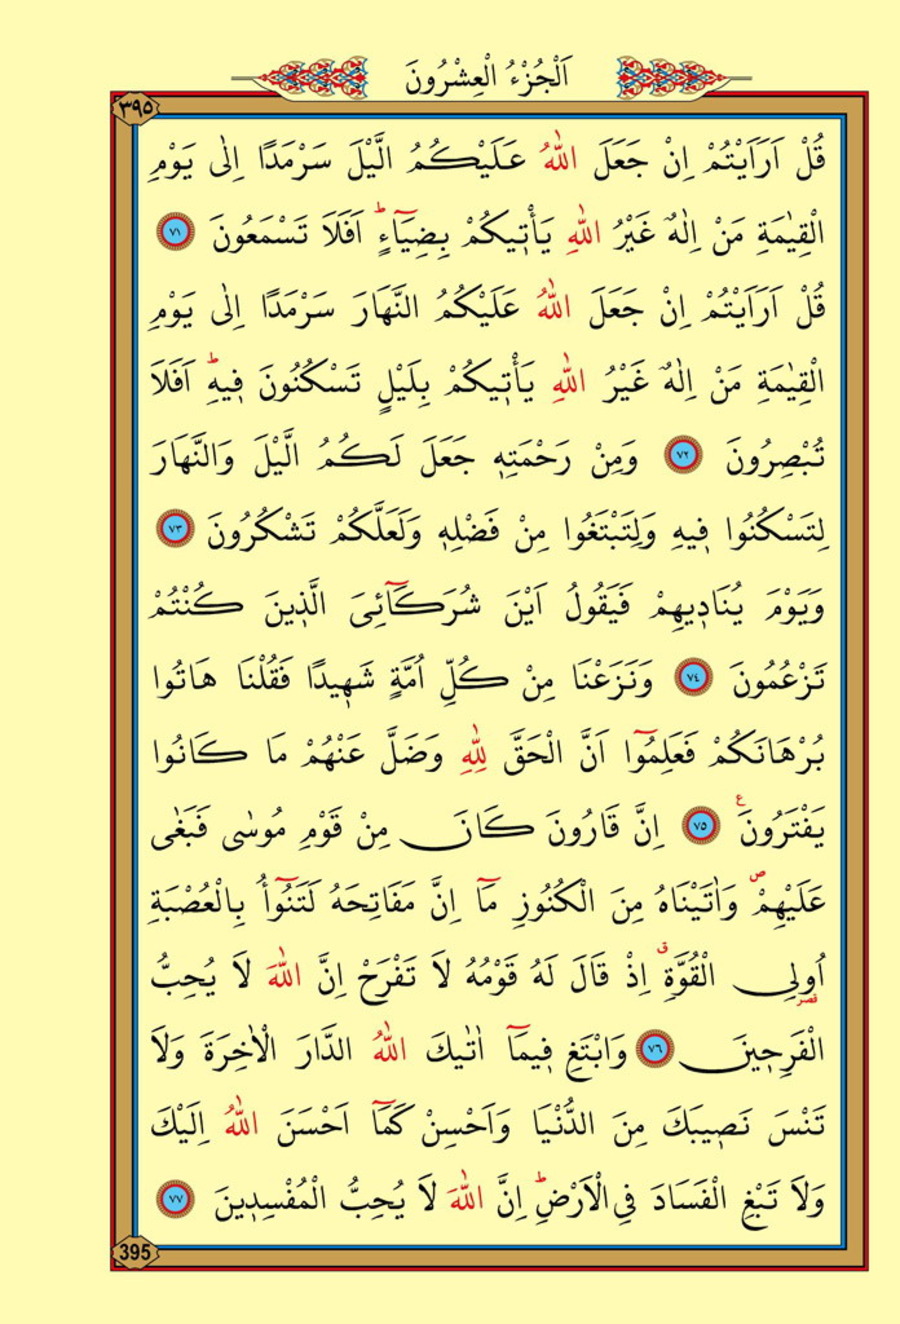 اَلْجُزْءُ الْعِشْرُونَ
٣٩٥
قُلْ اَرَاَيْتُمْ اِنْ جَعَلَ اللّٰهُ عَلَيْكُمُ الَّيْلَ سَرْمَدًا اِلٰى يَوْمِ
الْقِيٰمَةِ مَنْ اِلٰهٌ غَيْرُ اللّٰهِ يَأْت۪يكُمْ بِضِيَٓاءٍۜ اَفَلَا تَسْمَعُونَ ٧١
قُلْ اَرَاَيْتُمْ اِنْ جَعَلَ اللّٰهُ عَلَيْكُمُ النَّهَارَ سَرْمَدًا اِلٰى يَوْمِ
الْقِيٰمَةِ مَنْ اِلٰهٌ غَيْرُ اللّٰهِ يَأْت۪يكُمْ بِلَيْلٍ تَسْكُنُونَ ف۪يهِۜ اَفَلَا
تُبْصِرُونَ ٧٢ وَمِنْ رَحْمَتِه۪ جَعَلَ لَكُمُ الَّيْلَ وَالنَّهَارَ
لِتَسْكُنُوا ف۪يهِ وَلِتَبْتَغُوا مِنْ فَضْلِه۪ وَلَعَلَّكُمْ تَشْكُرُونَ ٧٣
وَيَوْمَ يُنَاد۪يهِمْ فَيَقُولُ اَيْنَ شُرَكَٓائِيَ الَّذ۪ينَ كُنْتُمْ
تَزْعُمُونَ ٧٤ وَنَزَعْنَا مِنْ كُلِّ اُمَّةٍ شَه۪يدًا فَقُلْنَا هَاتُوا
بُرْهَانَكُمْ فَعَلِمُٓوا اَنَّ الْحَقَّ لِلّٰهِ وَضَلَّ عَنْهُمْ مَا كَانُوا
يَفْتَرُونَ۟ ٧٥ اِنَّ قَارُونَ كَانَ مِنْ قَوْمِ مُوسٰى فَبَغٰى
عَلَيْهِمْۖ وَاٰتَيْنَاهُ مِنَ الْكُنُوزِ مَٓا اِنَّ مَفَاتِحَهُ لَتَنُٓوأُ بِالْعُصْبَةِ
اُو۬لِي الْقُوَّةِۗ اِذْ قَالَ لَهُ قَوْمُهُ لَا تَفْرَحْ اِنَّ اللّٰهَ لَا يُحِبُّ
الْفَرِح۪ينَ ٧٦ وَابْتَغِ ف۪يمَٓا اٰتٰيكَ اللّٰهُ الدَّارَ الْاٰخِرَةَ وَلَا
تَنْسَ نَص۪يبَكَ مِنَ الدُّنْيَا وَاَحْسِنْ كَمَٓا اَحْسَنَ اللّٰهُ اِلَيْكَ
وَلَا تَبْغِ الْفَسَادَ فِي الْاَرْضِۜ اِنَّ اللّٰهَ لَا يُحِبُّ الْمُفْسِد۪ينَ ٧٧
395